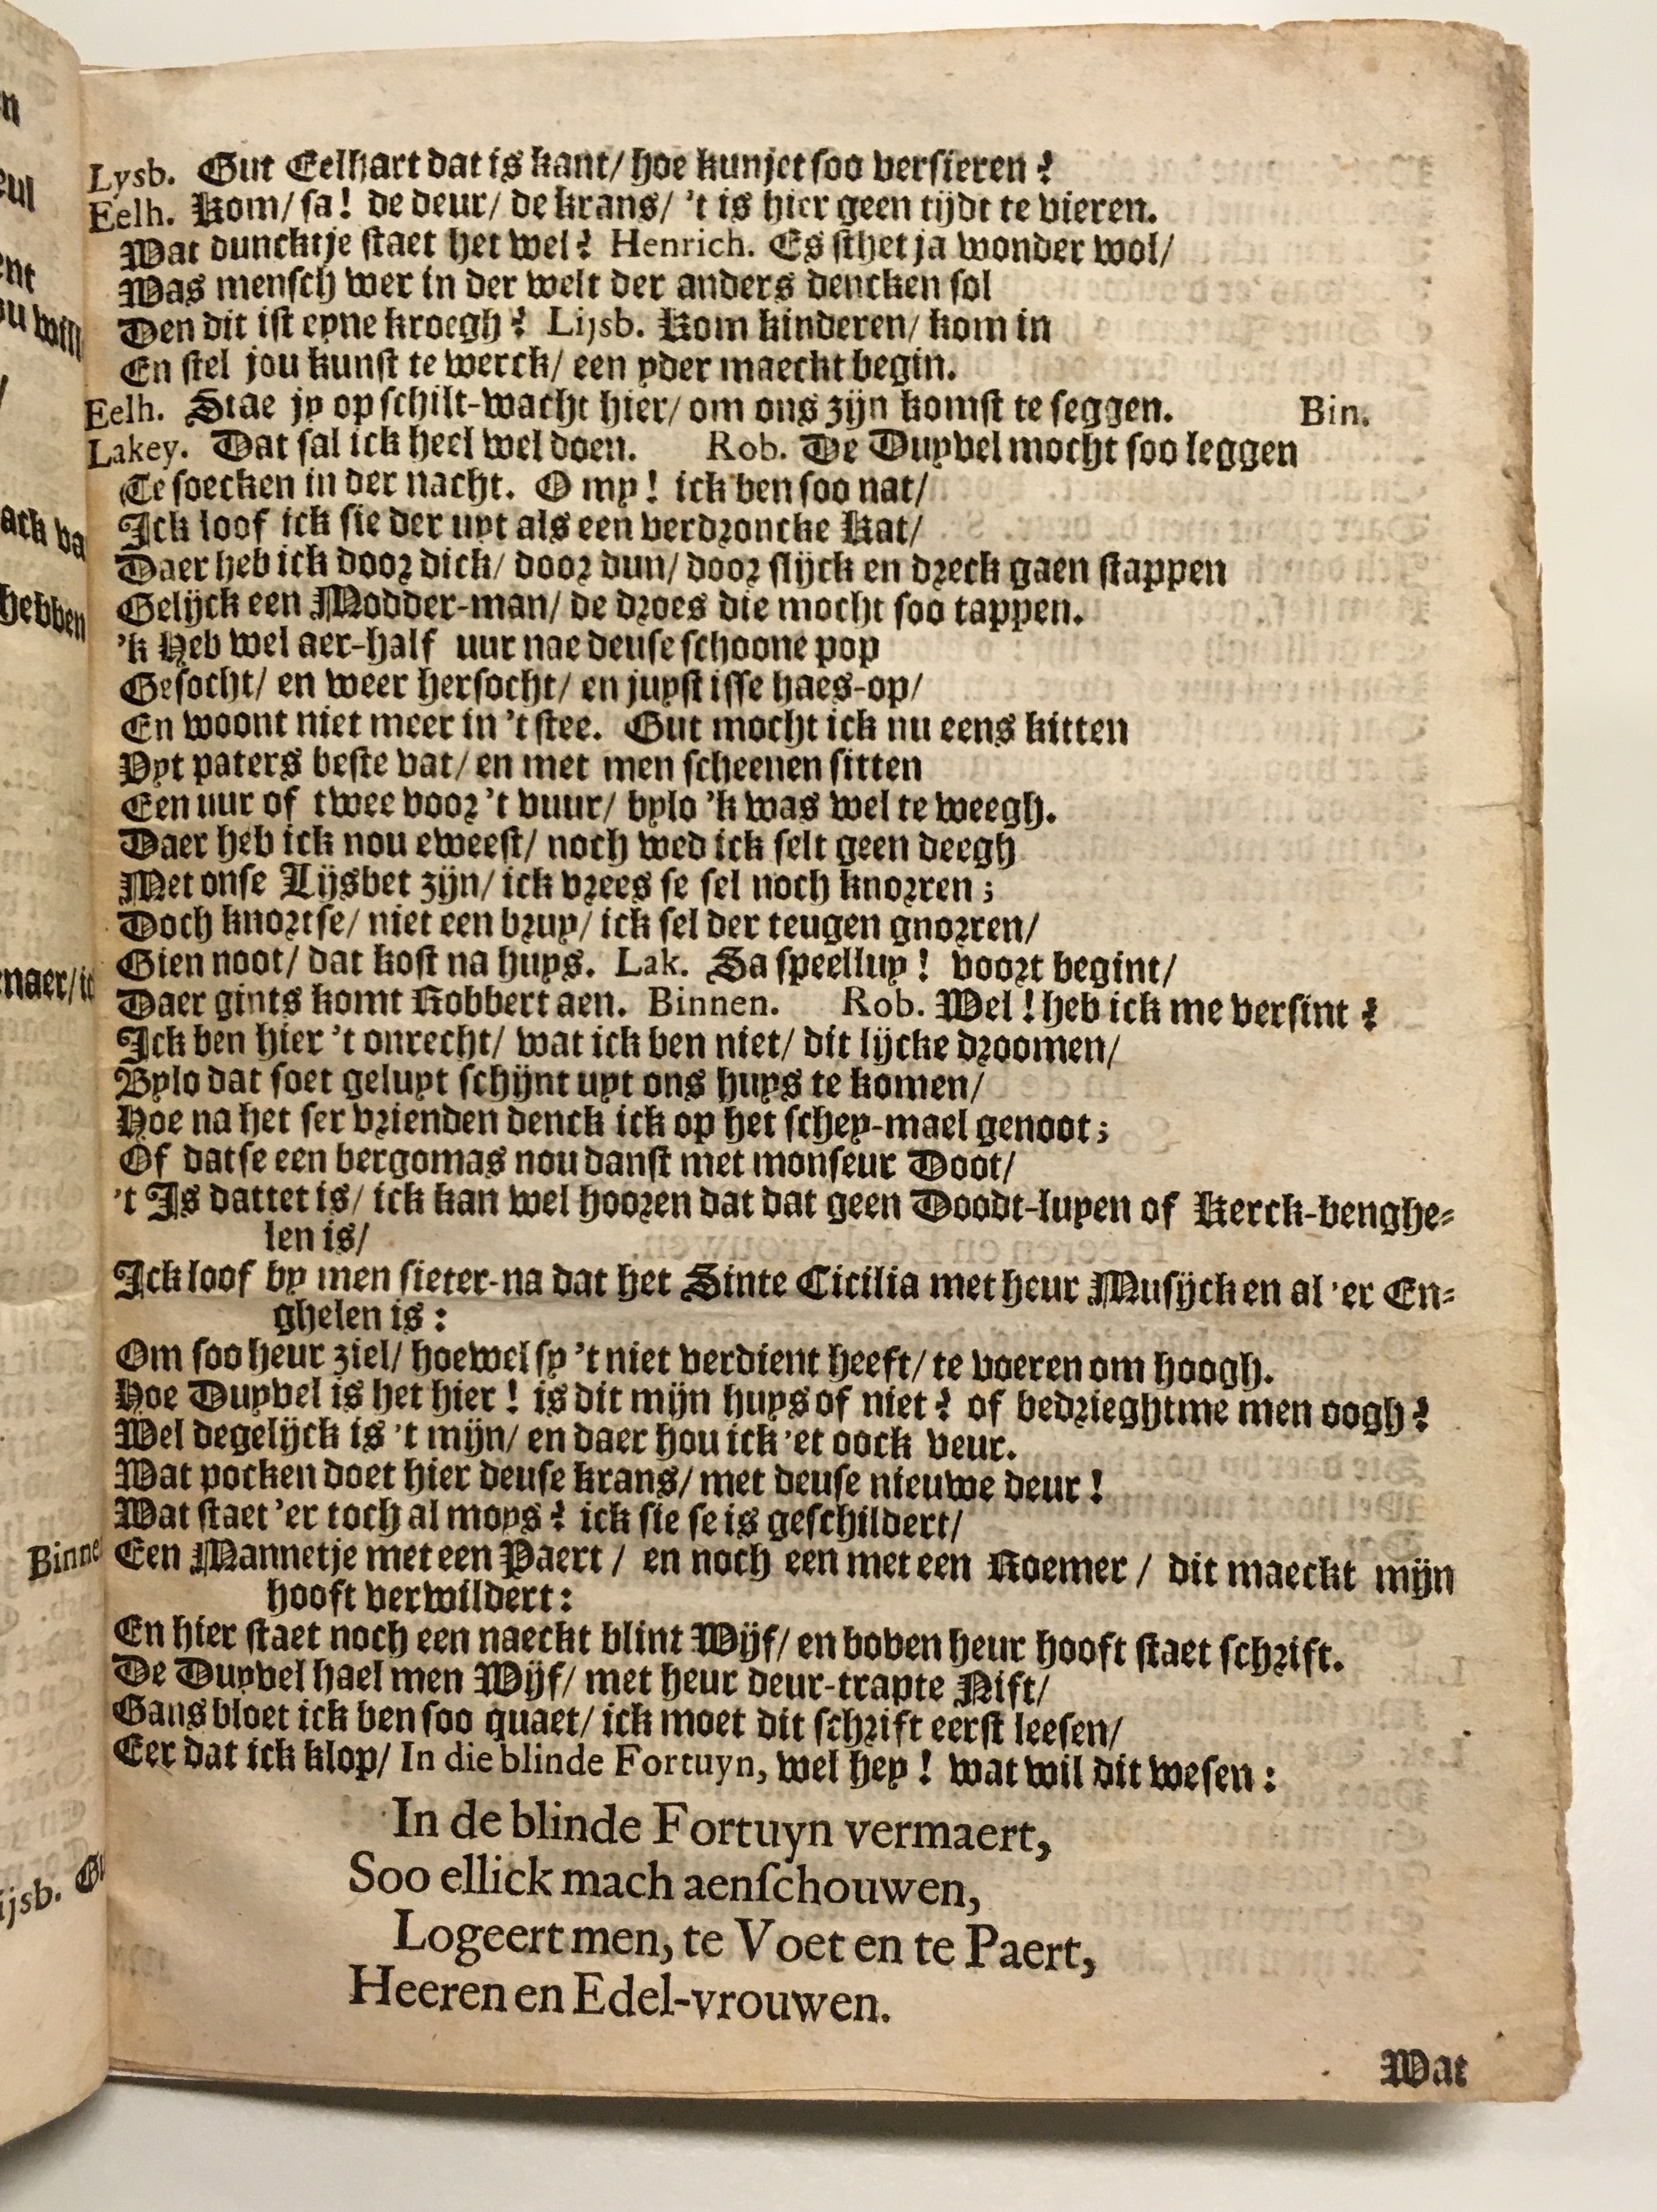 Lysb. Gut Eelhart dat is kant/ hoe kunjet soo versieren?
Eelh. Kom/ sa! de deur/ de krans/ 't is hier geen tijdt te vieren.
Wat duncktje staet het wel? Henrich. Es sthet ja wonder wol/
Was mensch wer in der welt der anders dencken sol
Den dit ist eyne kroegh? Lijsb. Kom kinderen/ kom in
En stel jou kunst te werck/ een yder maeckt begin.
Eelh. Stae jy op schilt-wacht hier/ om ons zijn komst te seggen. Bin.
Lakey. Dat sal ick heel wel doen. Rob. De Duyvel mocht soo leggen
Te soecken in der nacht. O my! ick ben soo nat/
Ick loof ick sie der uyt als een verdroncke Kat/
Daer heb ick door dick/ door dun/ door slijck en dreck gaen stappen
Gelijck een Modder-man/ de droes die mocht soo tappen.
'k Heb wel aer-half uur nae deuse schoone pop
Gesocht/ en weer hersocht/ en juyst isse haes-op/
En woont niet meer in 't stee. Gut mocht ick nu eens kitten
Vyt paters beste vat/ en met men scheenen sitten
Een uur of twee voor 't vuur/ bylo 'k was wel te weegh.
Daer heb ick nou eweest/ noch wed ick selt geen deegh
Met onse Lijsbet zijn/ ick vrees se sel noch knorren;
Doch knortse/ niet een bruy/ ick sel der teugen gnorren/
Gien noot/ dat kost na huys. Lak. Sa speelluy! voort begint/
Daer gints komt Robbert aen. Binnen. Rob. Wel! heb ick me versint?
Ick ben hier 't onrecht/ wat ick ben niet/ dit lijcke droomen/
Bylo dat soet geluyt schijnt uyt ons huys te komen/
Hoe na het ser vrienden denck ick op het schey-mael genoot;
Of datse een bergomas nou danst met monseur Doot/
't Is dattet is/ ick kan wel hooren dat dat geen Doodt-luyen of Kerck-benghe-
len is/
Ick loof by men sieter-na dat het Sinte Cicilia met heur Musijck en al 'er En-
ghelen is:
Om soo heur ziel/ hoewel sy 't niet verdient heeft/ te voeren om hoogh.
Hoe Duyvel is het hier! is dit mijn huys of niet? of bedrieghtme men oogh?
Wel degelijck is 't mijn/ en daer hou ick 'et oock veur.
Wat pocken doet hier deuse krans/ met deuse nieuwe deur!
Wat staet 'er toch al moys? ick sie se is geschildert/
Een Mannetje met een Paert/ en noch een met een Roemer/ dit maeckt mijn
hooft verwildert:
En hier staet noch een naeckt blint Wijf/ en boven heur hooft staet schrift.
De Duyvel hael men Wijf/ met heur deur-trapte Nift/
Gans bloet ick ben soo quaet/ ick moet dit schrift eerst leesen/
Eer dat ick klop/ In die blinde Fortuyn, wel hey! wat wil dit wesen:
In de blinde Fortuyn vermaert,
Soo ellick mach aenschouwen,
Logeert men, te Voet en te Paert,
Heeren en Edel-vrouwen.
Wat